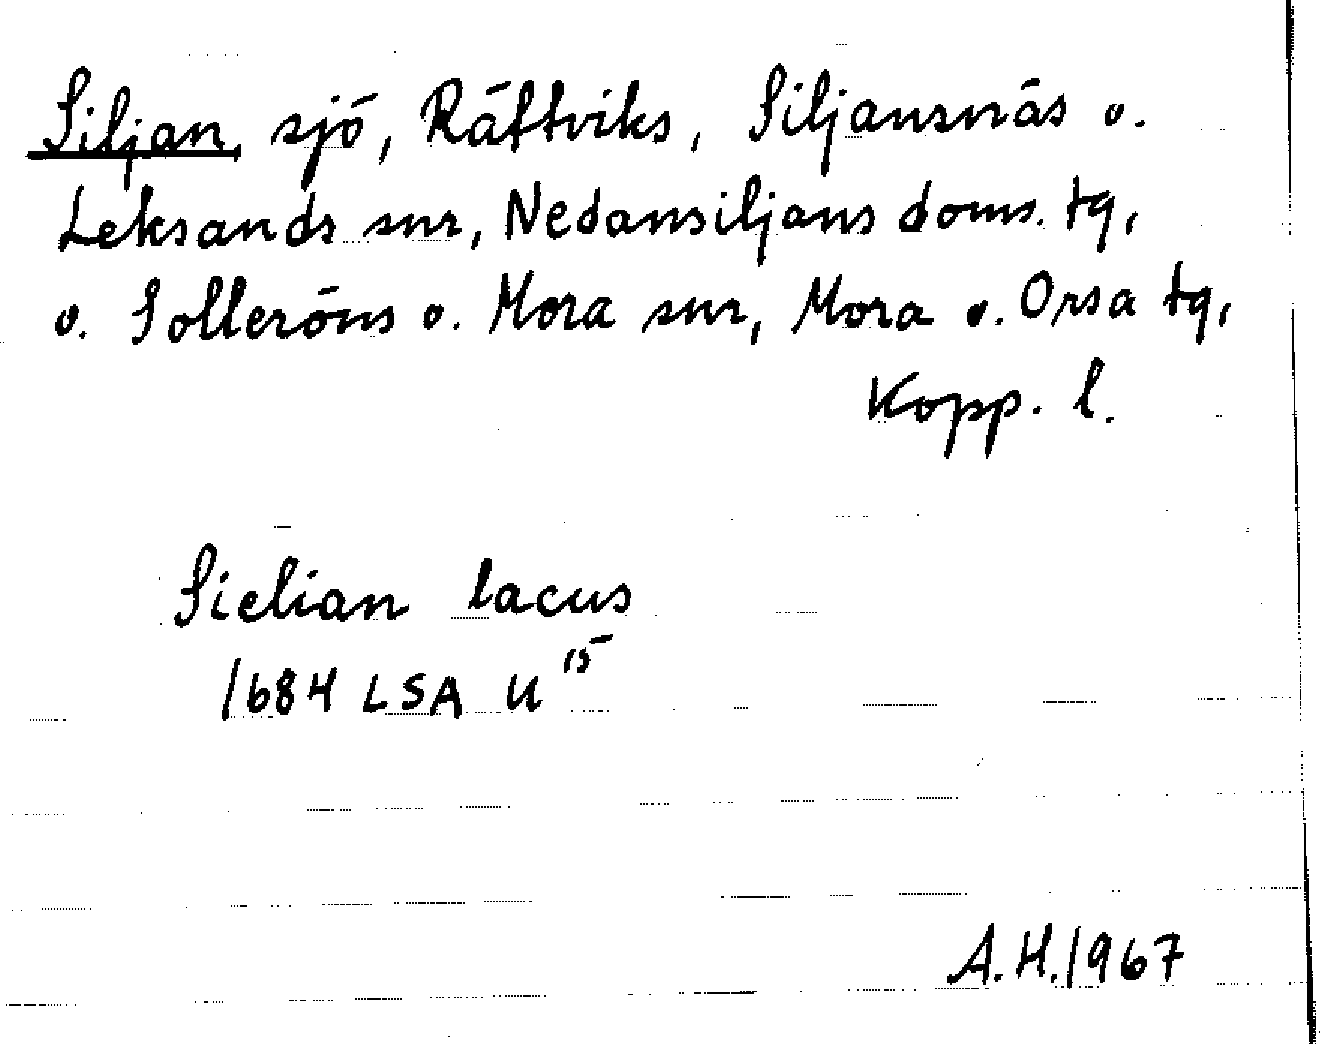 Siljan, sjö, Rättviks, Siljansnäs o.
Leksands snr, Nedansiljans doms. tg,
o. Solleröns o. Mora snr, Mora o. Orsa tg,
Kopp. l.
Sielian lacus
1684 LSA U 15
A.H. 1967